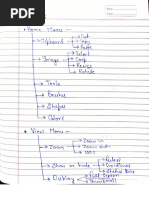 Home Menu —
Clipboard
Cut
Copy
Paste
Image
Select
Crop
Resize
Rotate
Tools
Brushes
Shapes
Colors
View Menu —
Zoom
Zoom in
Zoom out
100%
Show or hide
Rulers
Gridlines
Status Bar
Display
Full Screen
Thumbnail